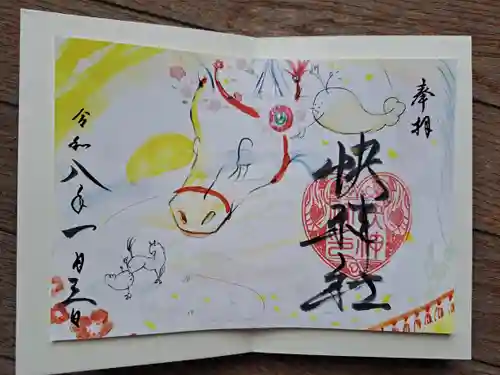 奉拝
快神社
令和八年一月三日